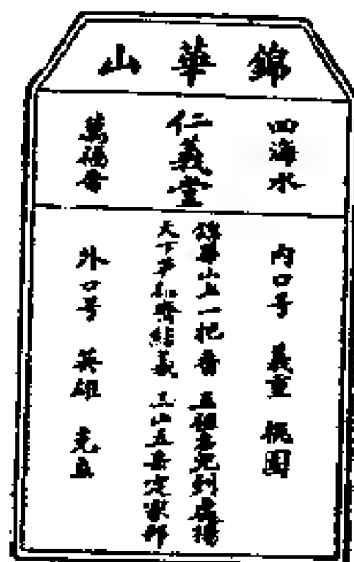 錦華山
四海水
仁義堂
萬福香
内口号 義重 桃園
錦華山上一把香 五祖名兒到處揚
天下齊結義 三山五岳定家邦
外口号 英雄